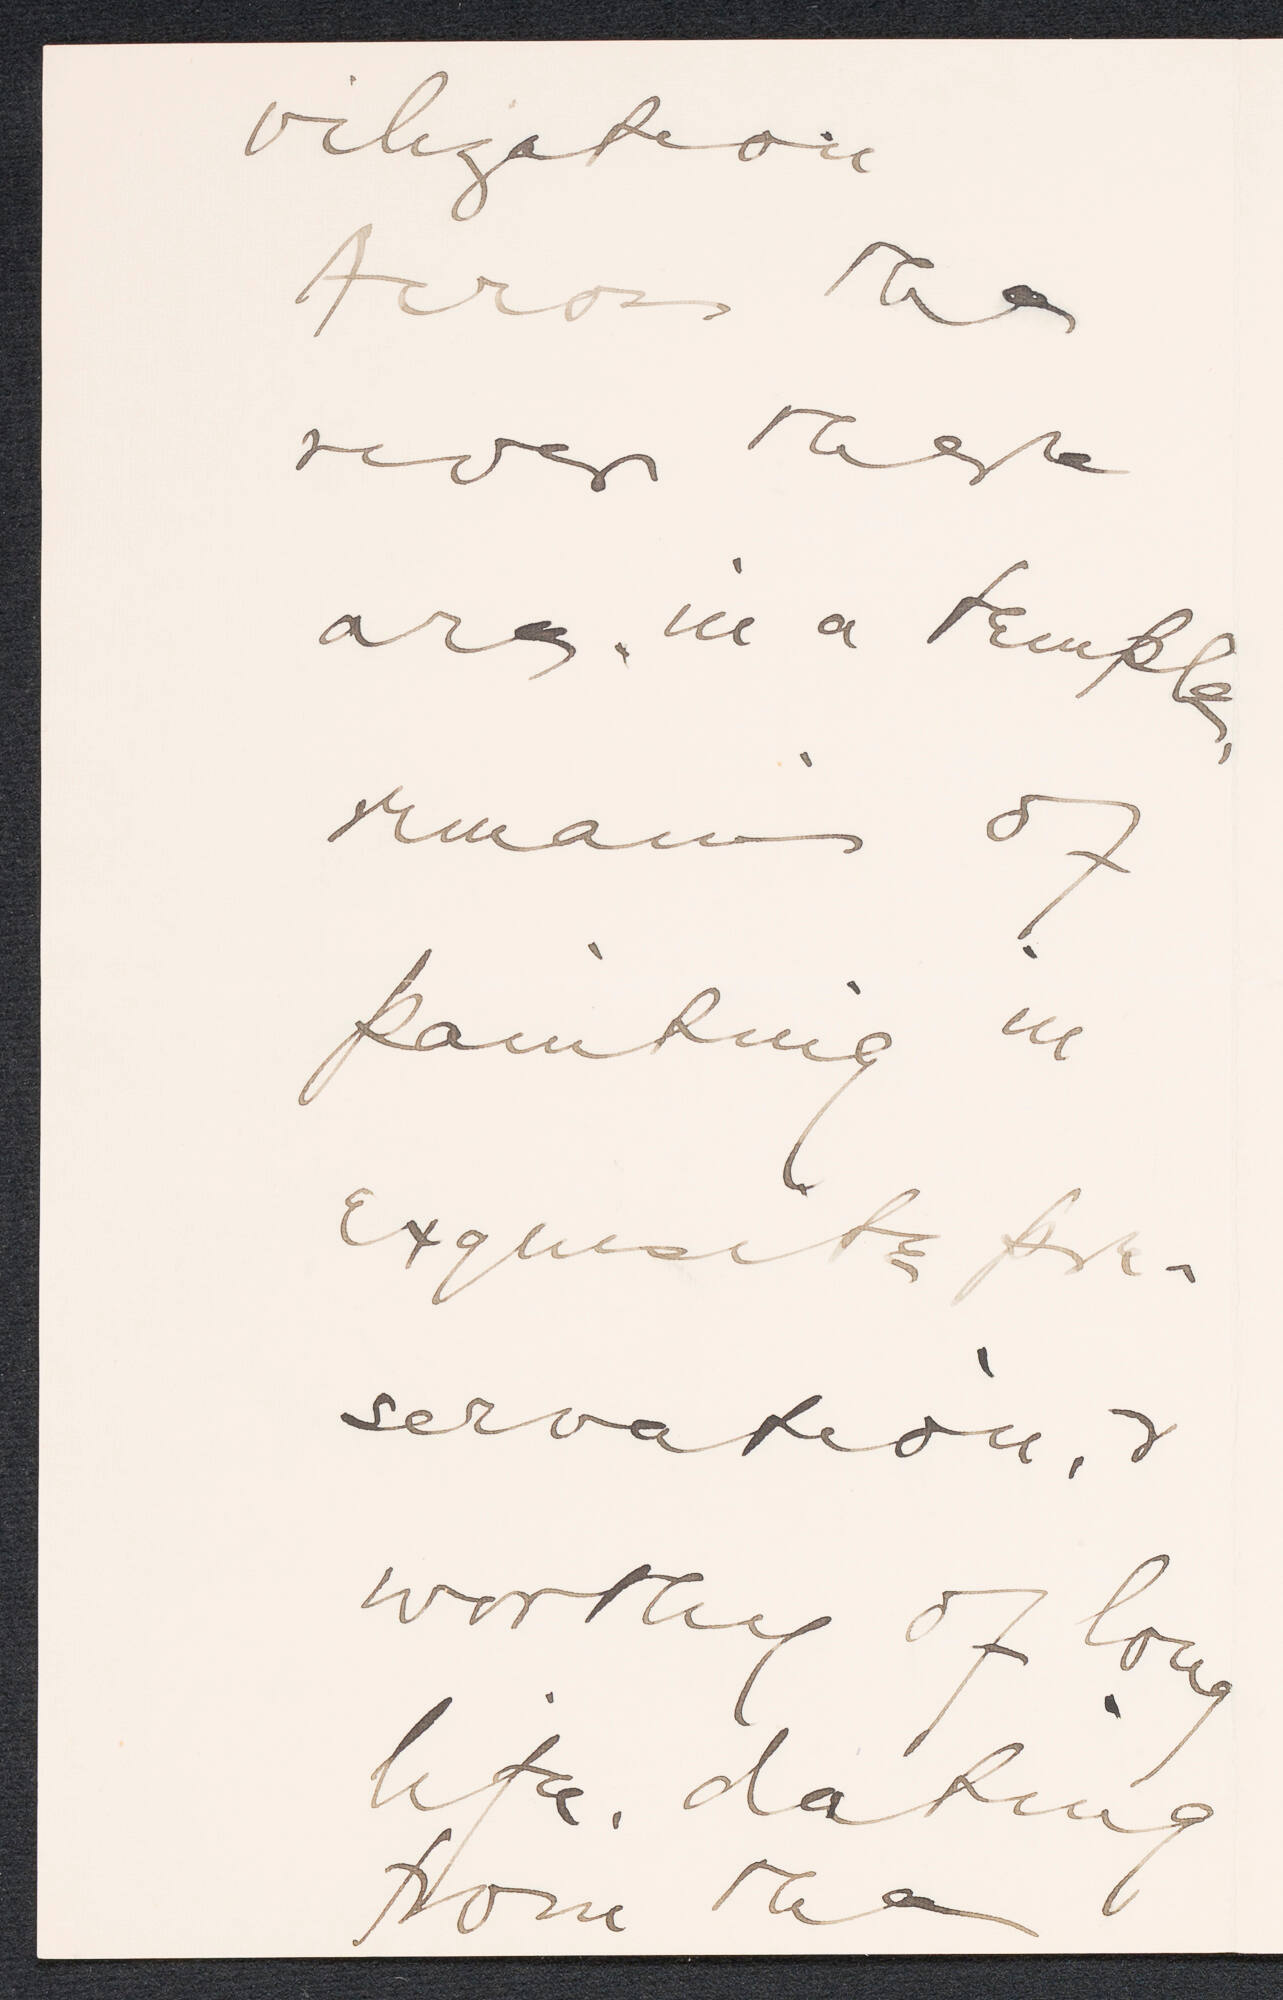 vilization
Across the
river there
are, in a temple,
remains of
painting in
exquisite pre-
servation, &
worthy of long
life, dating
from the